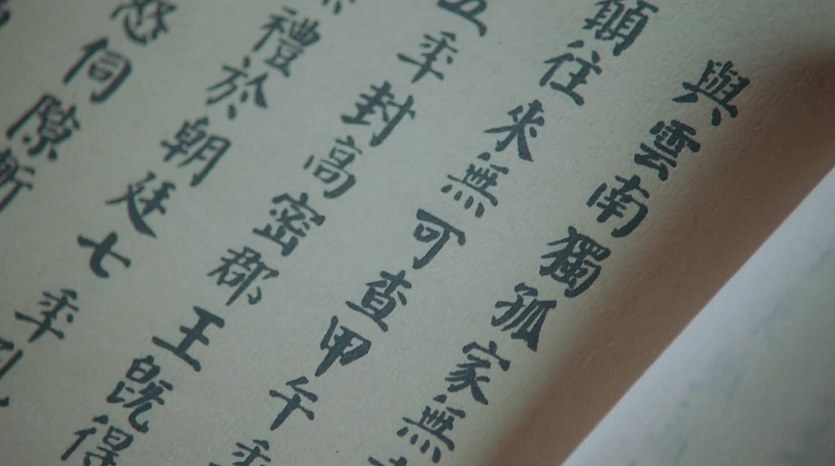 與雲南獨孤家無
往來無可查甲午年
五年封高密郡王既得
禮於朝廷七年
怒伺隙斬